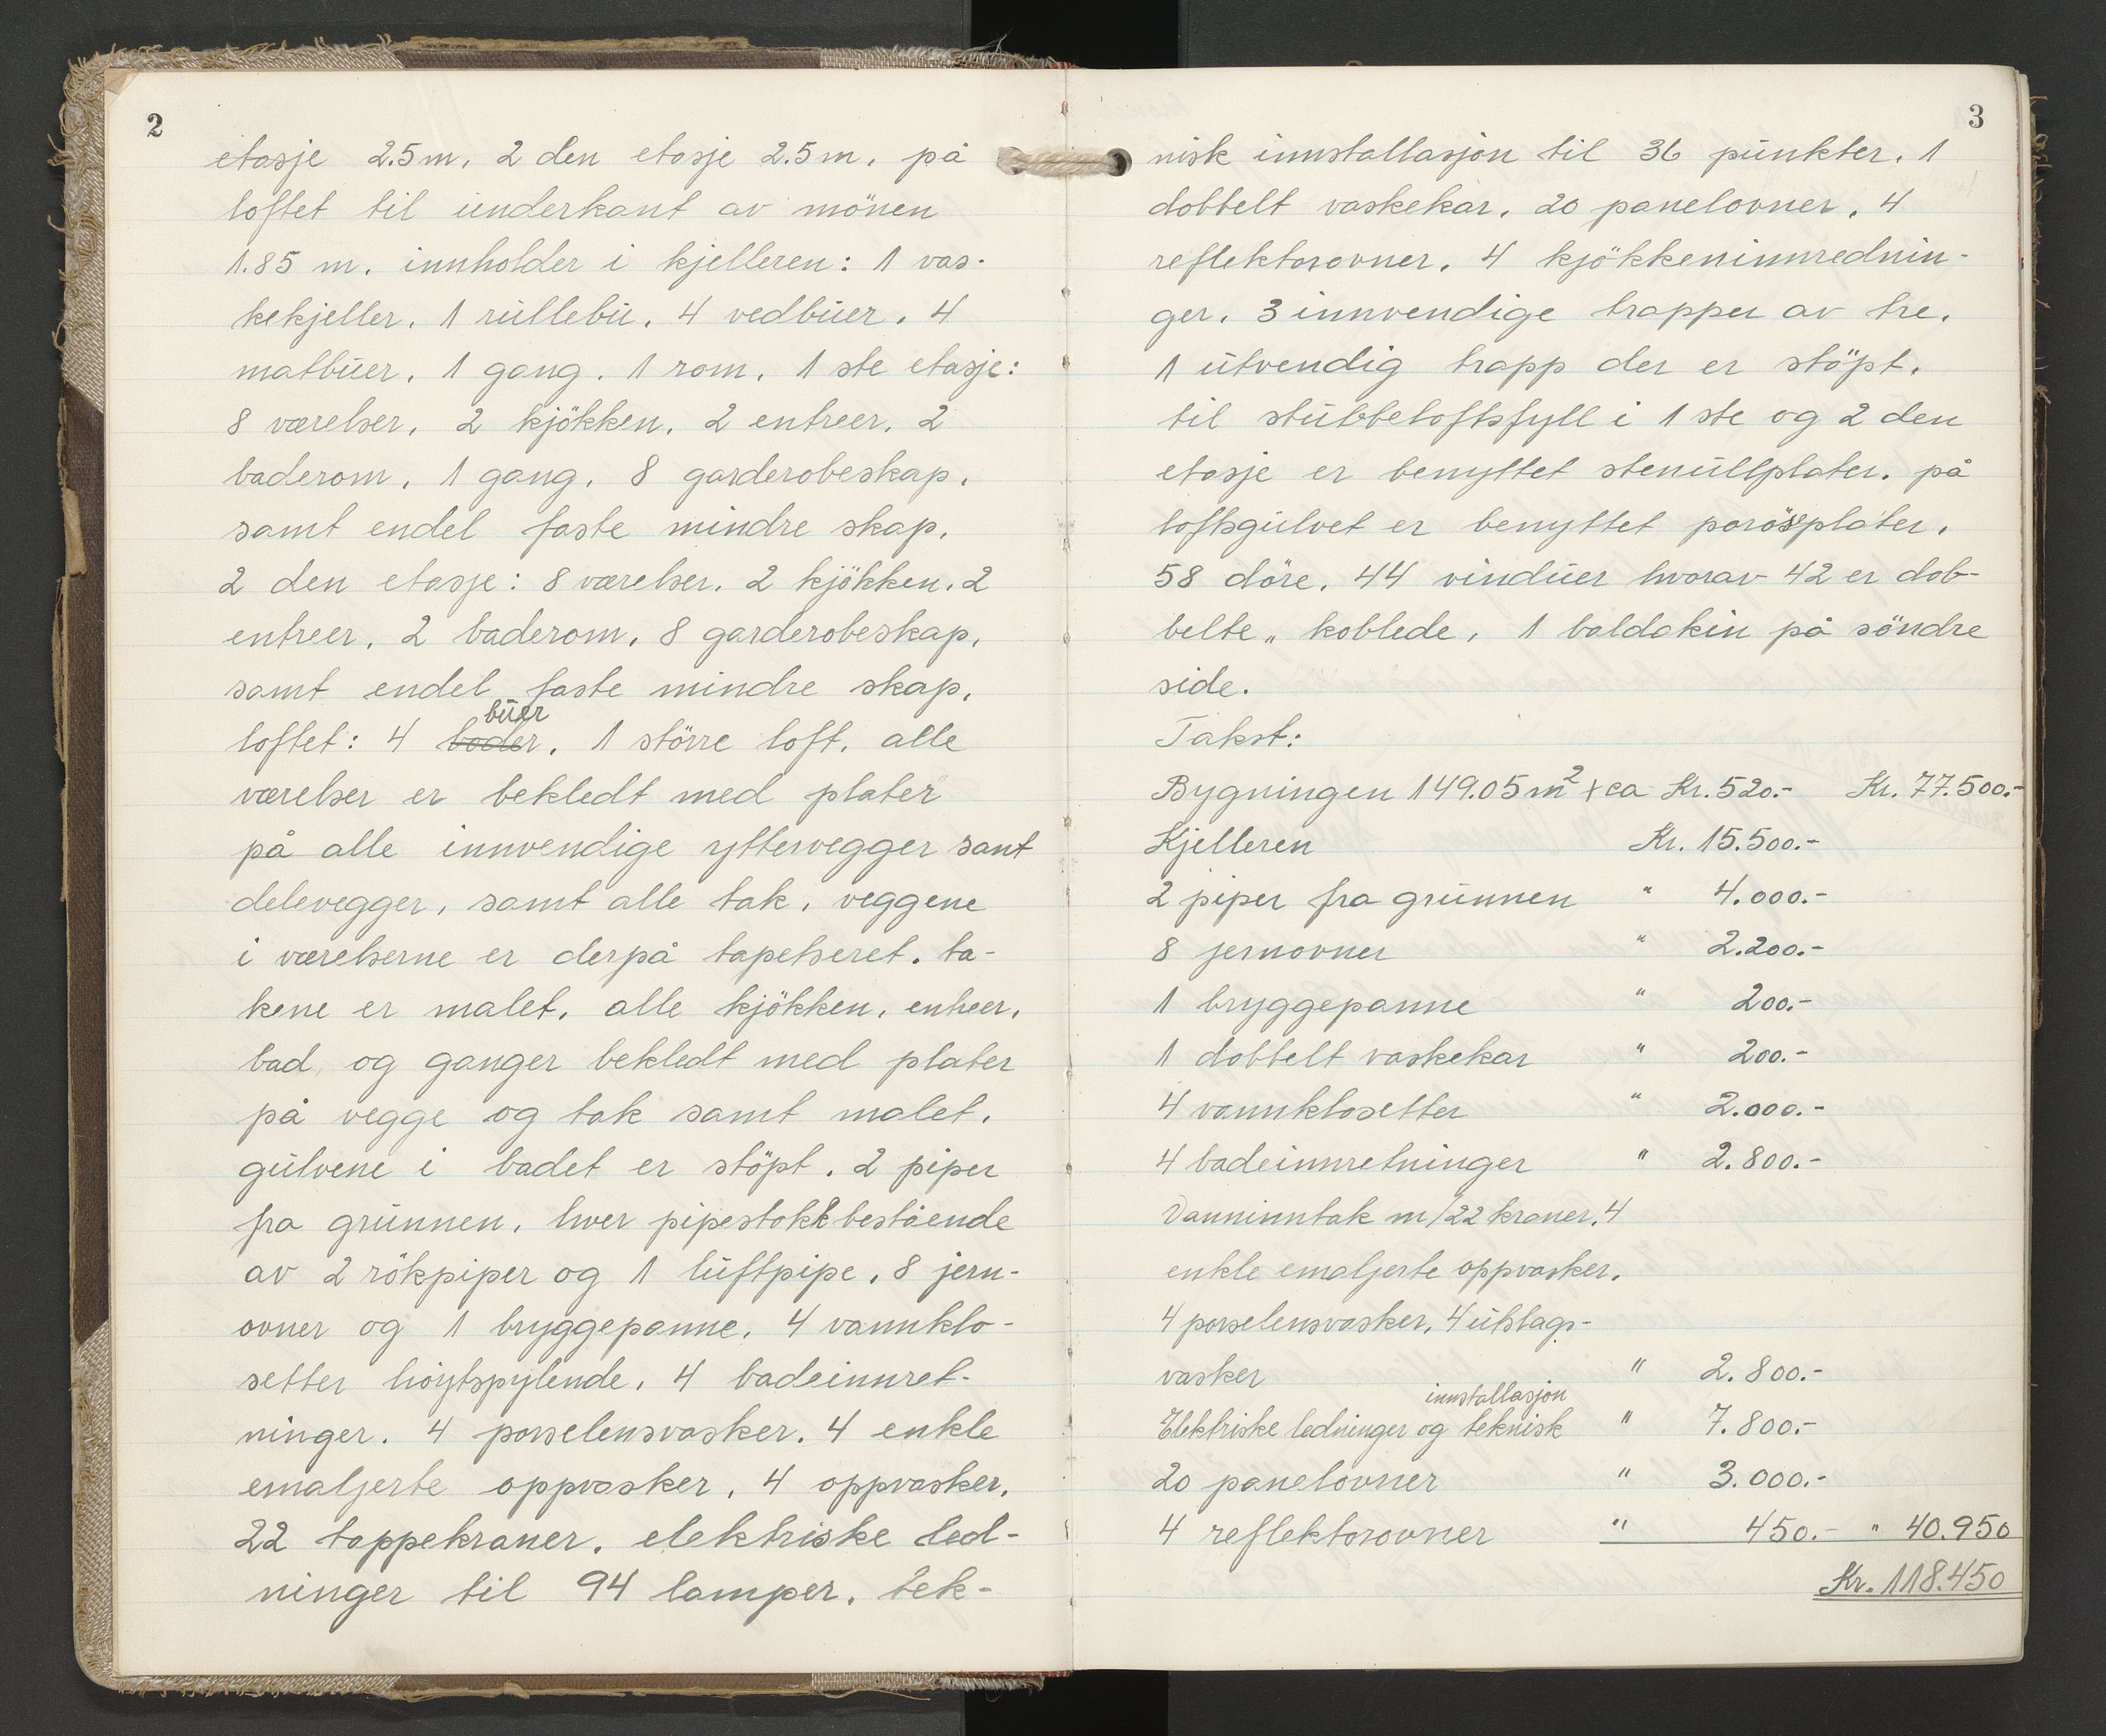 2
etasje 2.5 m, 2 den etasje 2.5 m, på
loftet til underkant av mönen
1.85 m. innholder i kjelleren: 1 vas-
kekjeller, 1 rullebu, 4 vedbuer, 4
matbuer, 1 gang, 1 rom, 1 ste etasje:
8 værelser, 2 kjökken, 2 entreer, 2
baderom, 1 gang, 8 garderobeskap,
samt endel faste mindre skap,
2 den etasje: 8 værelser, 2 kjökken, 2
entreer, 2 baderom, 8 garderobeskap,
samt endel faste mindre skap,
buer
loftet: 4 boder, 1 större loft, alle
værelser er bekledt med plater
på alle innvendige yttervegger samt
delevegger, samt alle tak, veggene
i værelserne er derpå tapetseret. ta-
kene er malet, alle kjökken, entreer,
bad, og ganger bekledt med plater
på vegge og tak samt malet,
gulvene i badet er stöpt. 2 piper
fra grunnen, hver pipestokk bestående
av 2 rökpiper og 1 luftpipe, 8 jern-
ovner og 1 bryggepanne, 4 vannklo-
setter höytspylende, 4 badeinnret-
ninger. 4 porselensvasker. 4 enkle
emaljerte oppvasker, 4 oppvasker,
22 tappekraner. elektriske led-
ninger til 94 lamper. tek-
3
nisk innstallasjon til 36 punkter, 1
dobbelt vaskekar, 20 panelovner, 4
reflektorovner, 4 kjökkeninnrednin-
ger, 3 innvendige trapper av tre,
1 utvendig trapp der er stöpt,
til stubbeloftsfyll i 1 ste og 2 den
etasje er benyttet stenullplater. på
loftsgulvet er benyttet poröseplater,
58 döre, 44 vinduer hvorav 42 er dob-
belte „ koblede, 1 baldakin på söndre
side.
Takst:
Bygningen 149.05 m² x ca Kr. 520.- Kr. 77.500.-
Kjelleren Kr. 15.500.-
2 piper fra grunnen " 4.000.-
8 jernovner " 2.200.-
1 bryggepanne " 200.-
1 dobbelt vaskekar " 200.-
4 vannklosetter " 2.000.-
4 badeinnretninger " 2.800.-
Vanninntak m/22 kraner, 4
enkle emaljerte oppvasker,
4 porselensvasker, 4 utslags-
vasker " 2.800.-
innstallasjon
Elektriske ledninger og teknisk " 7.800.-
20 panelovner " 3.000.-
4 reflektorovner " 450.- " 40.950
Kr. 118.450